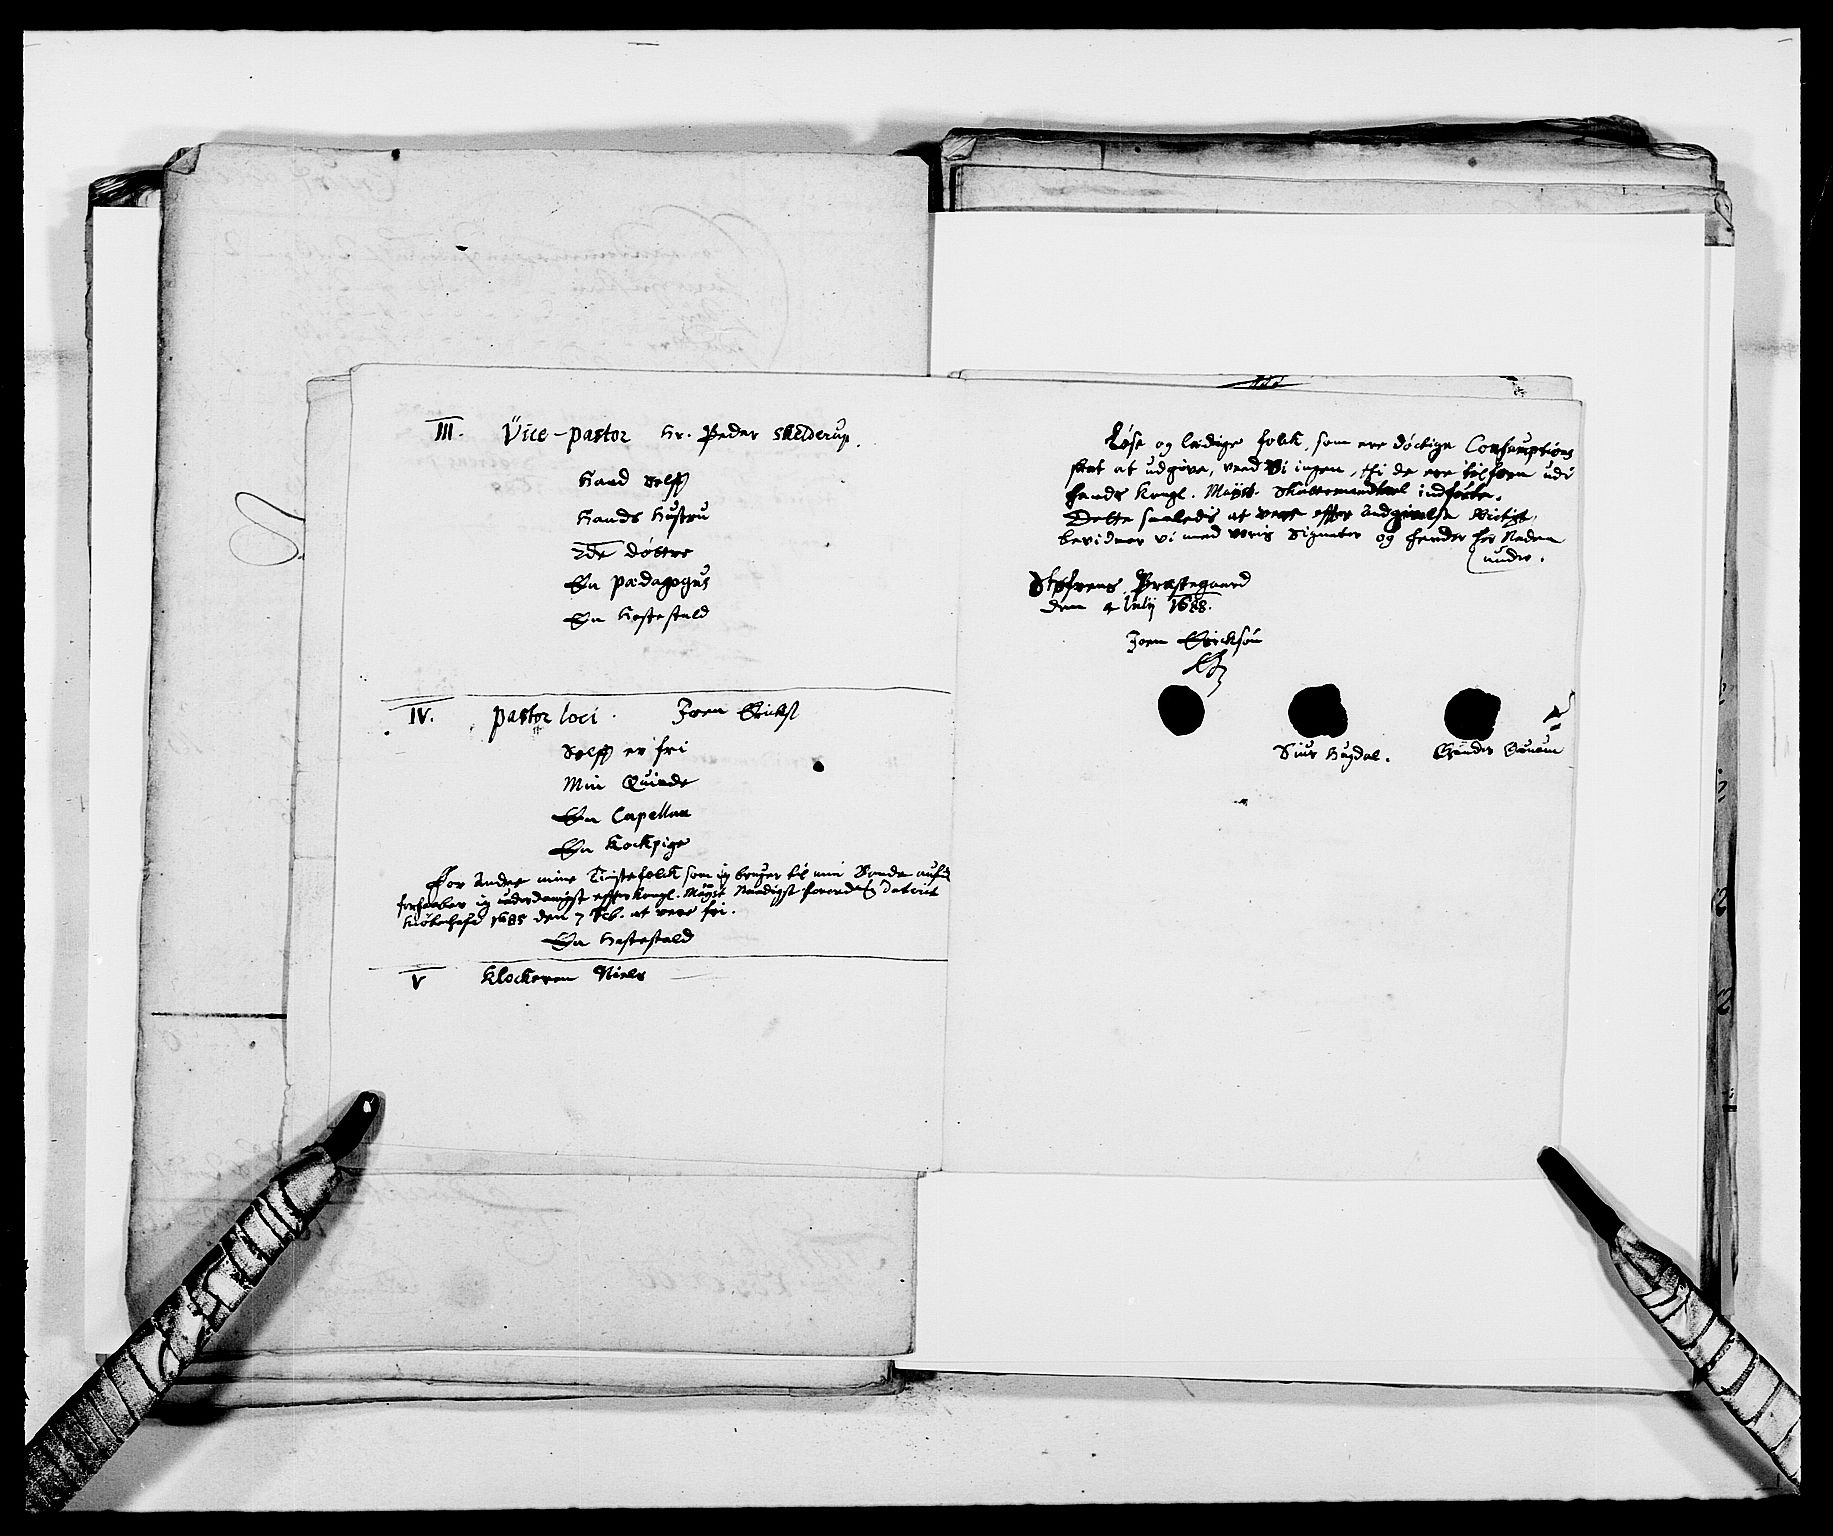 III. Vice-pastor Hr. Peder Skelderup.
Hand Selff
Hands Hustru
2de døttre
En pædagogus
En Hestestald
IV. pastor loci. Joen Ericks
Selff er fri
Min Quinde
En Capellan
En Kockpige
For Andre mine Tienstefolck som ieg bruger til min
forhaaber ieg underdanigst effter Kongl. Mayst. Naadigst forord
Kiøbenhafn 1685 den 7 Feb. at vere fri.
En Hestestald
V Klockeren Niels
Løse og ledige folck, som ere døctige Consumptions
skat at udgive, veed Vi ingen, thi de ere tilforn udi
hands Kongl. Mayst. Skattemandtal indførte.
Dette saaledis at vere effter Andgivelse Rictigt,
bevidner vi med voris Signeter og hender her Neden
under.
Præstegaard
den 4 July 1688.
Joen Erickson
Siur Hugdal. Gunder